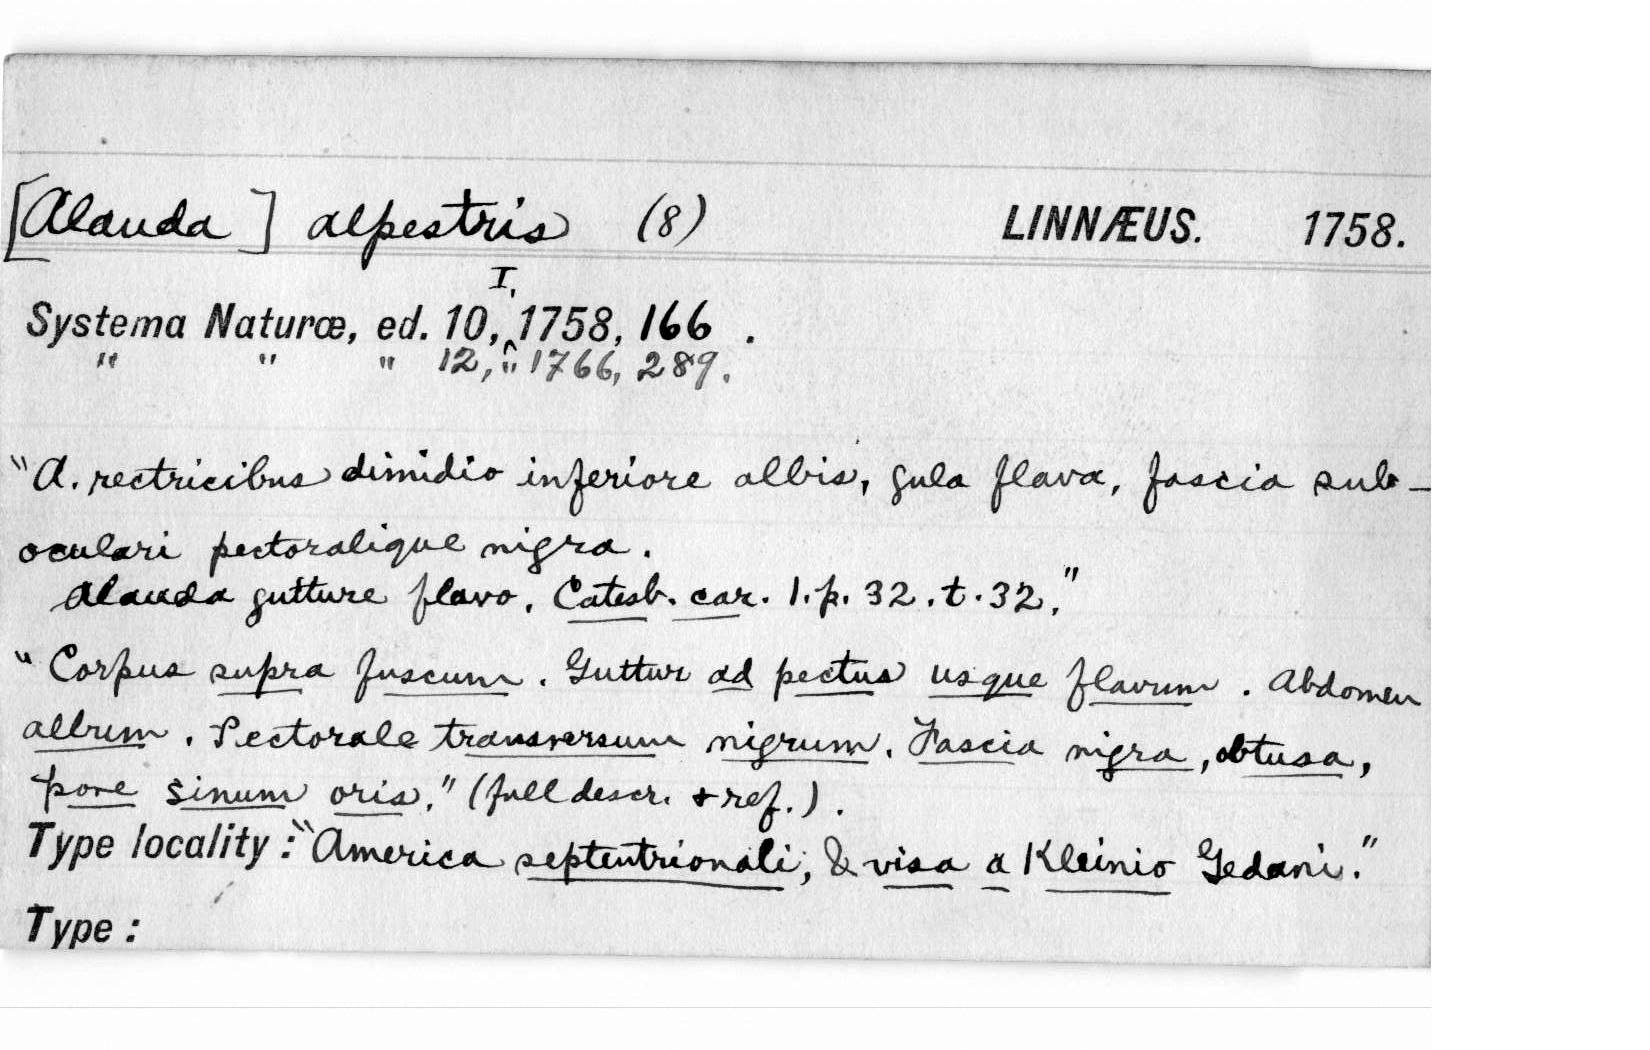 [Alauda] alpestris (8) LINNÆUS. 1758.
I,
Systema Naturæ, ed. 10,‸1758, 166 .
" " " 12, " 1766, 289.
"A. rectricibus dimidio inferiore albis, gula flava, fascia sub-
oculari pectoralique nigra.
Alauda gutture flavo. Catesb. car. 1. p. 32. t. 32."
"Corpus supra fuscum. Guttur ad pectus usque flavum. Abdomen
album. Pectorale transversum nigrum. Fascia nigra, obtusa,
pone sinum oris." (full descr. + ref.).
Type locality: "America septentrionali, & visa a Kleinio Gedani."
Type: